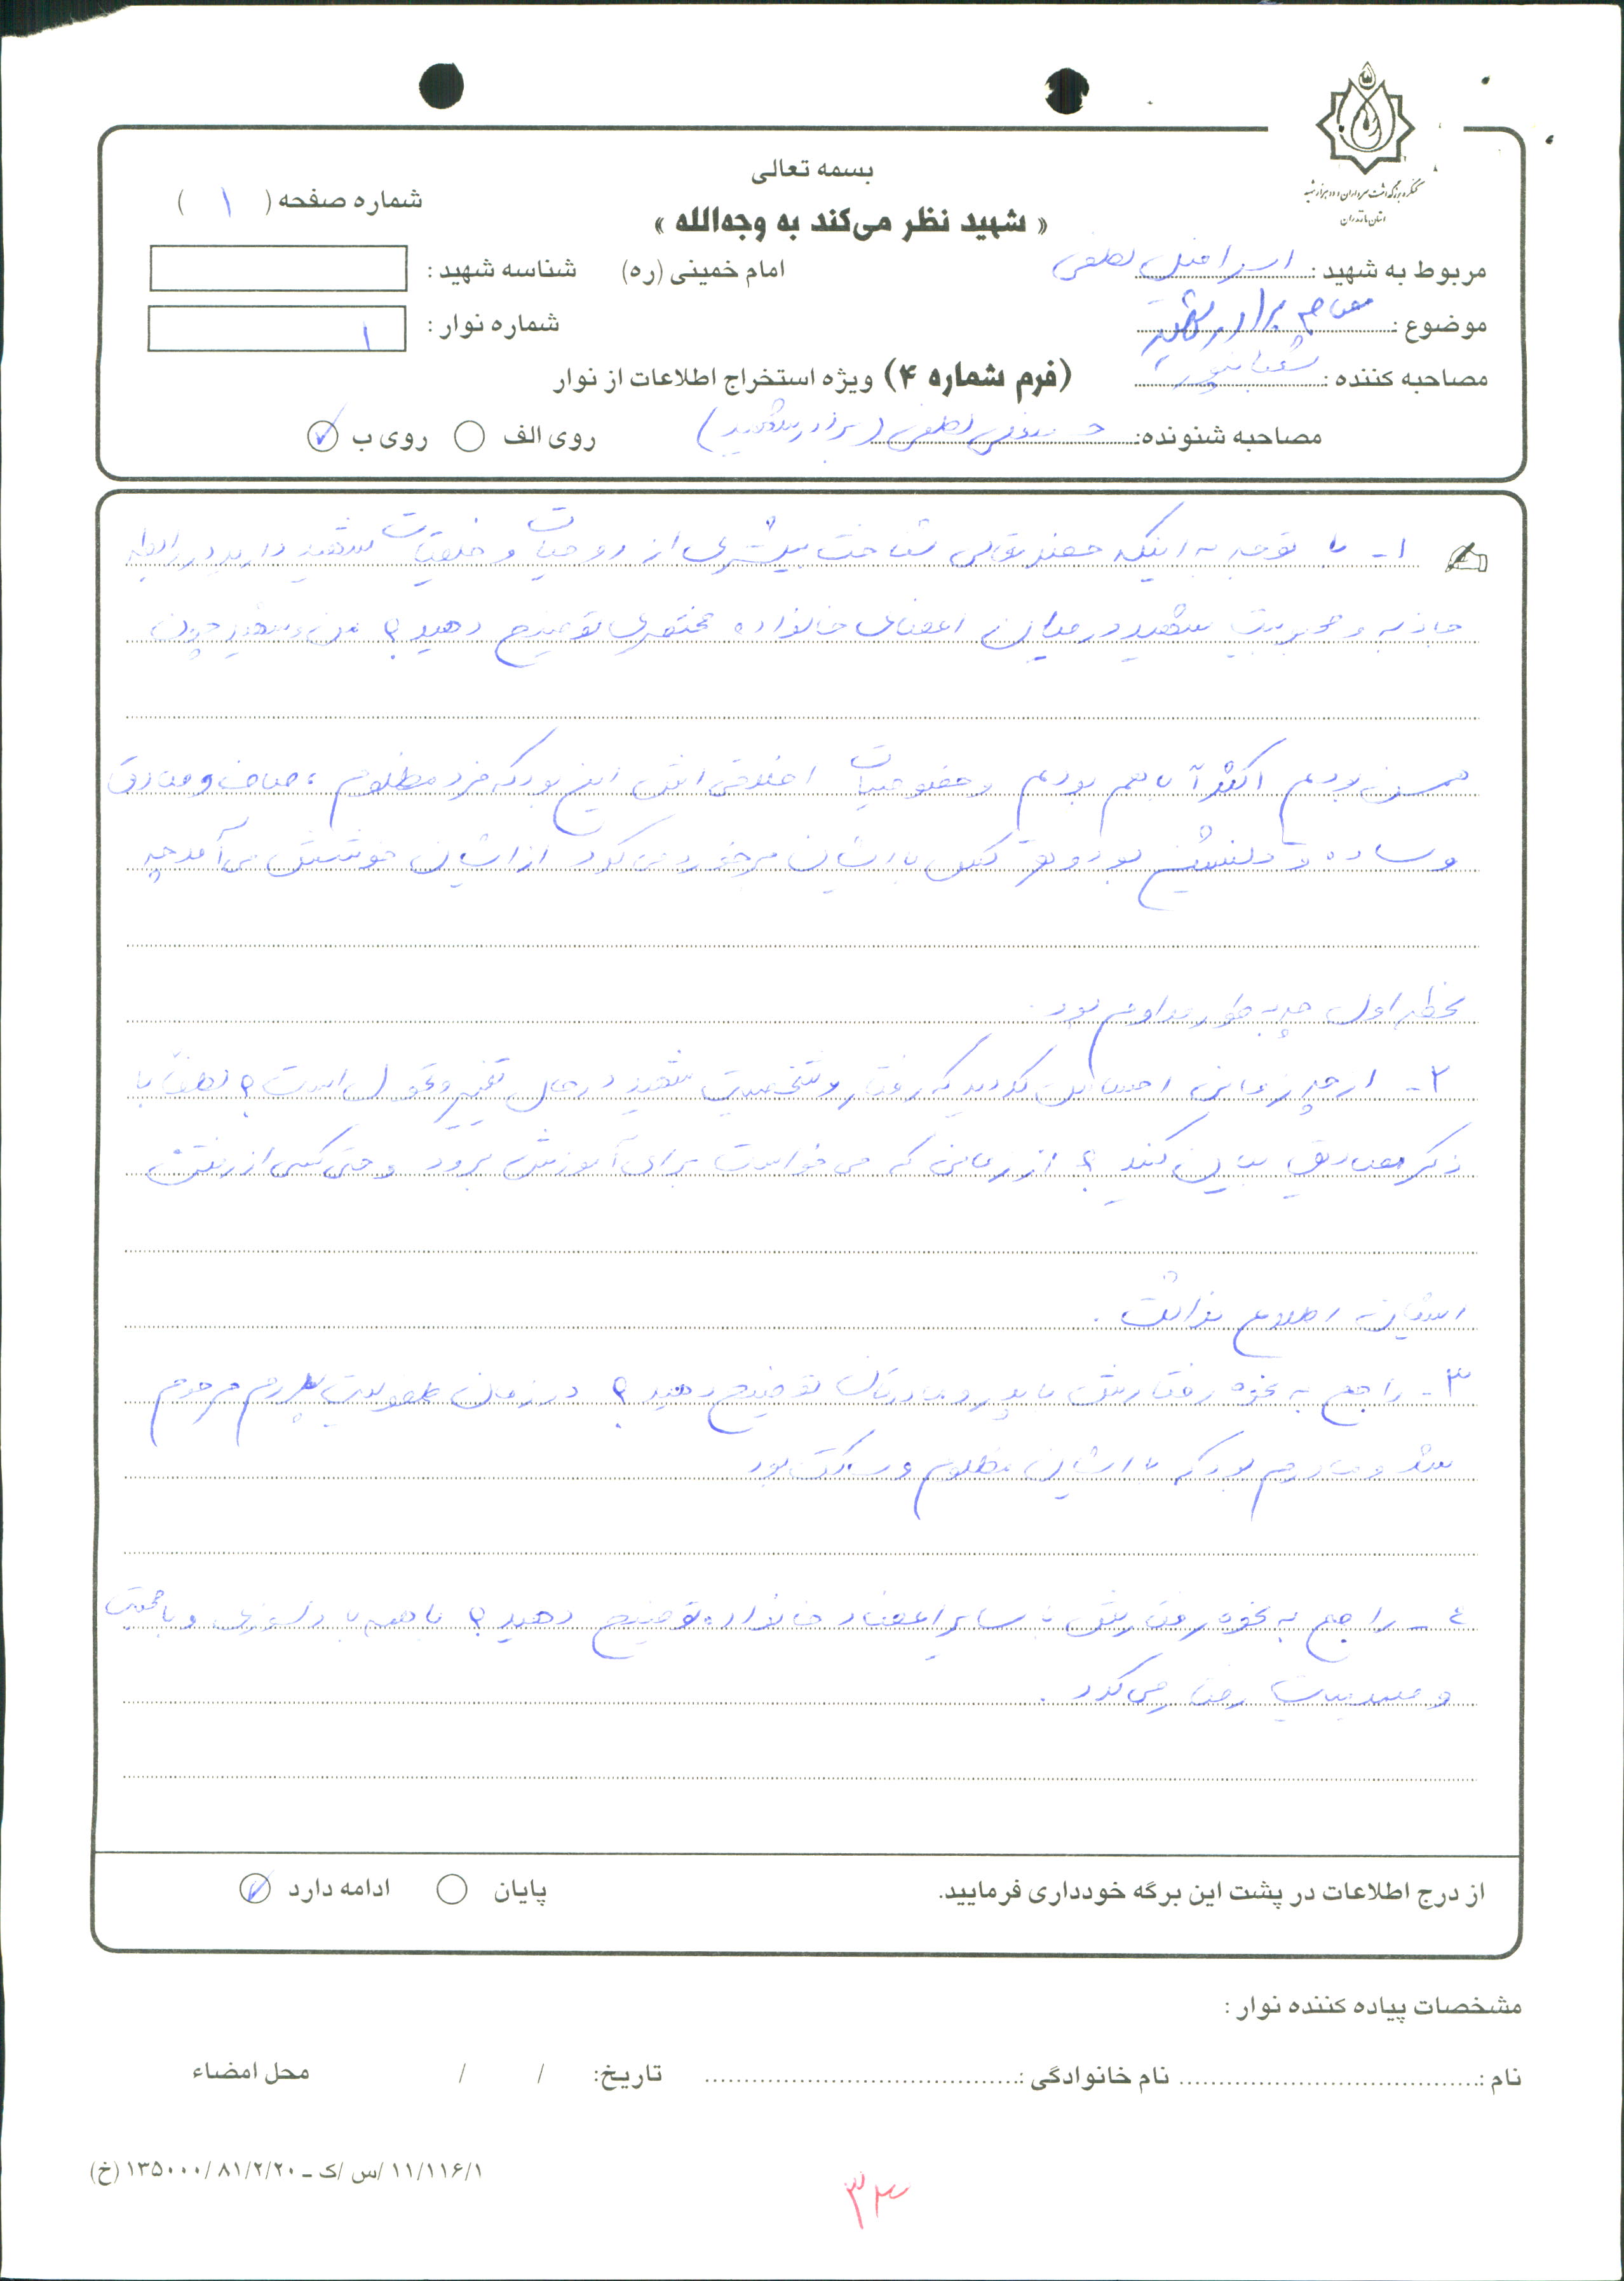 کنگره بزرگداشت سرداران و ده هزار شهید
استان مازندران
بسمه تعالی
شماره صفحه ( ۱ )
« شهید نظر می‌کند به وجه‌الله »
مربوط به شهید : اسرافیل لطفی
امام خمینی (ره)
شناسه شهید :
موضوع : مصاحبه برادر شهید
شماره نوار : ۱
مصاحبه کننده :
(فرم شماره ۴) ویژه استخراج اطلاعات از نوار
مصاحبه شنونده: لطفی (برادر شهید)
روی الف
روی ب ✓
۱- با توجه به اینکه جنابعالی شناخت بیشتری از روحیات و خلقیات شهید دارید در رابطه
جاذبه و محبوبیت شهید در میان اعضای خانواده مختصری توضیح دهید؟ من و شهید چون
همسن بودیم اکثراً با هم بودیم و خصوصیات اخلاقی اش این بود که فرد مظلوم ، صاف و صادق
و ساده و دلنشین بود و هر کس با ایشان برخورد می کرد از ایشان خوشش می آمد چه
لحظه اول چه به طور مداوم بود.
۲- از چه زمانی احساس کردید که رفتار و شخصیت شهید در حال تغییر و تحول است؟ لطفاً با
ذکر مصادیق بیان کنید؟ از زمانی که می خواست برای آموزش برود و حتی کسی از رفتن
ایشان اطلاع نداشت .
۳- راجع به نحوه رفتارش با پدر و مادرتان توضیح دهید؟ در زمان طفولیت پدرم مرحوم
شد و مادرم بود که با ایشان مظلوم و ساکت بود
۴- راجع به نحوه رفتارش با سایر اعضاء خانواده توضیح دهید؟ با همه با دلسوزی و با محبت
و صمیمیت رفتار می کرد .
از درج اطلاعات در پشت این برگه خودداری فرمایید.
پایان
ادامه دارد ✓
مشخصات پیاده کننده نوار :
نام : نام خانوادگی : تاریخ: / / محل امضاء
۱۱/۱۱۶/۱ /س /ک ـ ۸۱/۲/۲۰ /۱۳۵۰۰۰ (خ)
۳۳